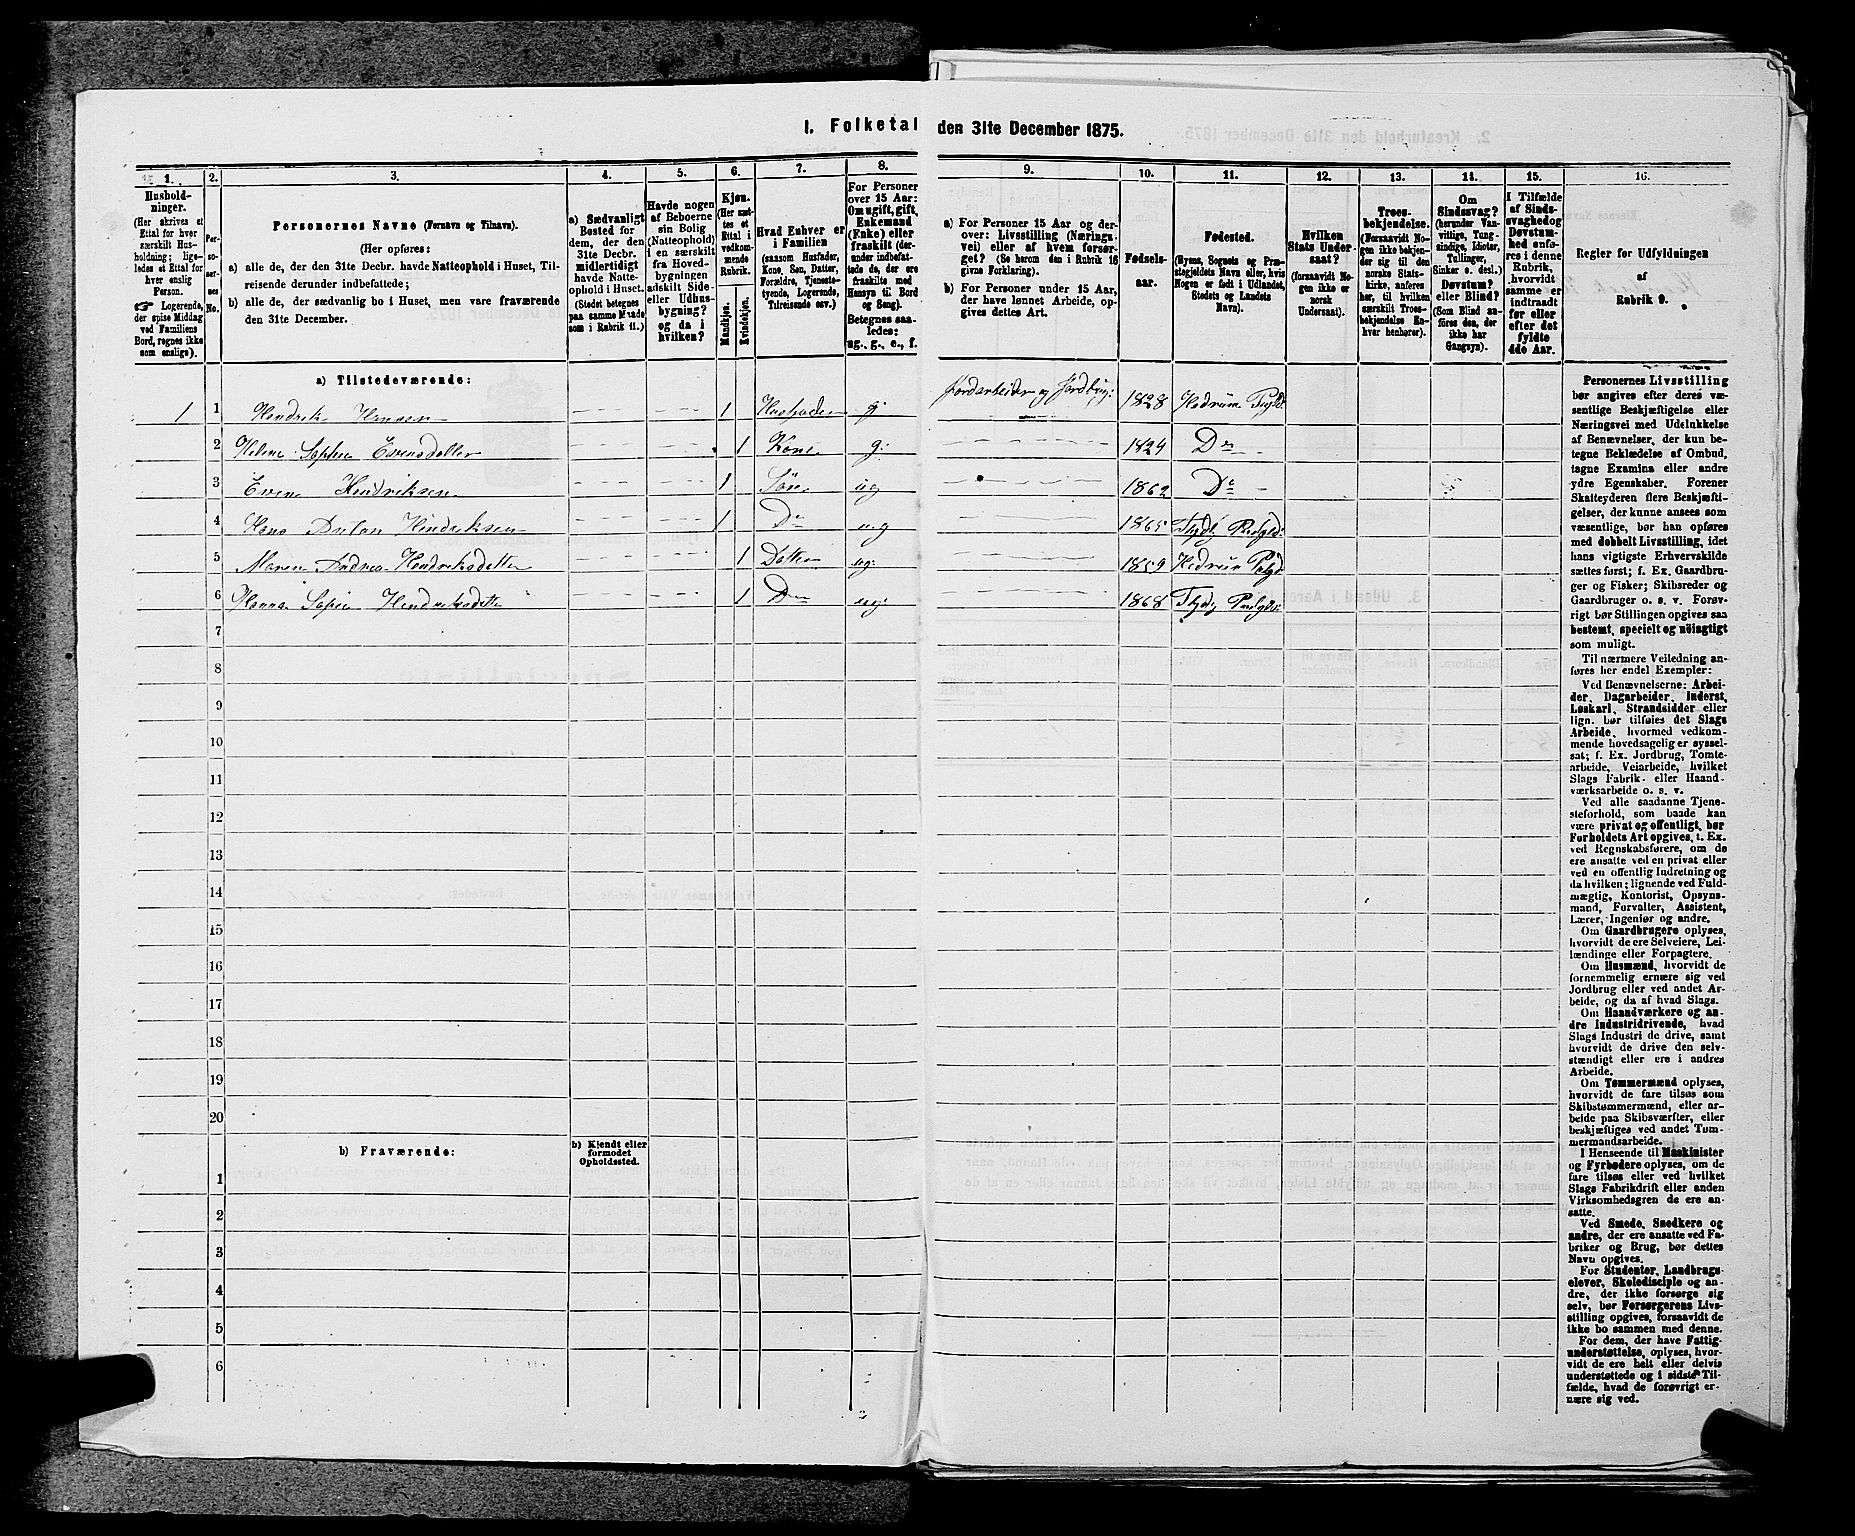 I. Folketal den 31te December 1875.
1.
Hushold-
ninger.
(Her skrives et
Ettal for hver
særskilt Hus-
holdning; lige-
ledes et Ettal for
hver enslig
Person.
Logerende,
der spise Middag
ved Familiens
Bord, regnes ikke
som enslige).
2.
Per-
so-
ner-
nes
No.
3.
Personernes Navne (Fornavn og Tilnavn).
(Her opføres:
a) alle de, der den 31te Decbr. havde Natteophold i Huset, Til-
reisende derunder indbefattede;
b) alle de, der sædvanlig bo i Huset, men vare fraværende
den 31te December.
4.
a) Sædvanligt
Bosted for
dem, der den
31te Decbr.
midlertidigt
havde Natte-
ophold i Huset.
(Stedet betegnes
paa samme Maade
som i Rubrik 11.)
5.
Havde nogen
af Beboerne
sin Bolig
(Natteophold)
i en særskilt
fra Hoved-
bygningen
adskilt Side-
eller Udhus-
bygning?
og da i
hvilken?
6.
Kjøn.
(Her sæt-
tes et
Ettal i
vedkom-
mende
Rubrik.
Mandkjøn.
Kvindekjøn.
7.
Hvad Enhver er
i Familien
(saasom Husfader,
Kone, Søn, Datter,
Forældre, Tjeneste-
tyende, Logerende,
Tilreisende osv.)
8.
For Personer
over 15 Aar:
Om ugift, gift,
Enkemand
(Enke) eller
fraskilt (der-
under indbefat-
tede de, der ere
fraskilte med
Hensyn til Bord
og Seng).
Betegnes saa-
ledes:
ug., g., e., f.
9.
a) For Personer 15 Aar og der-
over: Livsstilling (Nærings-
vei) eller af hvem forsør-
get? (Se herom den i Rubrik 16
givne Forklaring).
b) For Personer under 15 Aar,
der have lønnet Arbeide, op-
gives dettes Art.
10.
Fødsels-
aar.
11.
Fødested.
(Byens, Sognets og Præ-
stegjeldets Navn eller, hvis
Nogen er født i Udlandet,
Stedets og Landets
Navn).
12.
Hvilken
Stats Under-
saat?
(forsaavidt No-
gen ikke er
norsk
Undersaat).
13.
Troes-
bekjendelse.
(Forsaavidt No-
gen ikke bekjen-
der sig til den
norske Stats-
kirke, anføres
her, til hvilken
særskilt Troes-
bekjendelse En-
hver henhører).
14.
Om
Sindssvag?
(herunder Van-
vittige, Tung-
sindige, Idioter,
Tullinger,
Sinker o. desl.)
Døvstum?
eller Blind?
(Som Blind an-
føres den, der
ikke har
Gangsyn).
15.
I Tilfælde
af Sinds-
svaghed og
Døvstum-
hed anfø-
res i denne
Rubrik,
hvorvidt
samme er
indtraadt
før eller
efter det
fyldte
4de Aar.
16.
Regler for Udfyldningen
af
Rubrik 9.
a) Tilstedeværende:
1 1 Hendrik Hansen 1 Husfader g: Jordarbeider og Jordbrug: 1828 Hedrum Prgld:
2 Helene Sophie Evensdatter 1 Kone g: 1824 Do
3 Even Hendriksen 1 Søn ug 1862 Do
4 Hans Anton Hendriksen 1 Do ug 1865
5 Maren Andrea Hendriksdatter 1 Datter ug: 1859 Hedrum
6 Hanna Sofie Hendriksdatter 1 Do ug: 1868
7
8
9
10
11
12
13
14
15
16
17
18
19
20
b) Fraværende:
b) Kjendt eller
formodet
Opholdssted.
1
2
3
4
5
6
Personernes Livsstilling
bør angives efter deres væ-
sentlige Beskjæftigelse eller
Næringsvei med Udelukkelse
af Benævnelser, der kun be-
tegne Beklædelse af Ombud,
tagne Examina eller andre
ydre Egenskaber. Forener
Skatteyderen flere Beskjæfti-
gelser, der kunne ansees som
væsentlige, bør han opføres
med dobbelt Livsstilling, idet
hans vigtigste Erhvervskilde
sættes først; f. Ex. Gaardbru-
ger og Fisker; Skibsreder og
Gaardbruger o. s. v. Forøv-
rigt bør Stillingen opgives saa
bestemt, specielt og nöiagtigt
som muligt.
Til nærmere Veiledning an-
føres her endel Exempler:
Ved Benævnelserne: Arbei-
der, Dagarbeider, Inderst,
Løskarl, Strandsidder eller
lign. bør tilføies det Slags
Arbeide, hvormed vedkom-
mende hovedsagelig er syssel-
sat; f. Ex. Jordbrug, Tomte-
arbeide, Veiarbeide, hvilket
Slags Fabrik- eller Haand-
værksarbeide o. s. v.
Ved alle saadanne Tjene-
steforhold, som baade kan
være privat og offentligt, bør
Forholdets Art opgives, t. Ex.
ved Regnskabsførere, om de
ere ansatte ved en privat eller
ved en offentlig Indretning og
da hvilken; lignende ved Fuld-
mægtig, Kontorist, Opsyns-
mand, Forvalter, Assistent,
Lærer, Ingeniør og andre.
Om Gaardbrugere oplyses,
hvorvidt de ere Selveiere, Lei-
lændinge eller Forpagtere.
Om Husmænd, hvorvidt de
fornemmelig ernære sig ved
Jordbrug eller ved andet Ar-
beide, og da af hvad Slags.
Om Haandværkere og an-
dre Industridrivende, hvad
Slags Industri de drive, samt
hvorvidt de drive den selv-
stændigt eller ere i andres
Arbeide.
Om Tømmermænd oplyses,
hvorvidt de fare tilsøs som
Skibstømmermænd, eller ar-
beide paa Skibsværfter, eller
beskjæftiges ved andet Tøm-
mermandsarbeide.
I Henseende til Maskinister
og Fyrbødere oplyses, om de
fare tilsøs eller ved hvilket
Slags Fabrikdrift eller anden
Virksomhedsgren de ere an-
satte.
Ved Smede, Snedkere og
andre, der ere ansatte ved Fa-
briker og Brug, bør dettes
Navn opgives.
For Studenter, Landbrugs-
elever, Skoledisciple og an-
dre, der ikke forsørge sig
selv, bør Forsørgerens Livs-
stilling opgives, forsaavidt de
ikke bo sammen med denne.
For dem, der have Fattig-
understøttelse, oplyses, hvor-
vidt de ere helt eller delvis
understøttede og i sidste Til-
fælde, hvad de forøvrigt er-
nære sig ved.